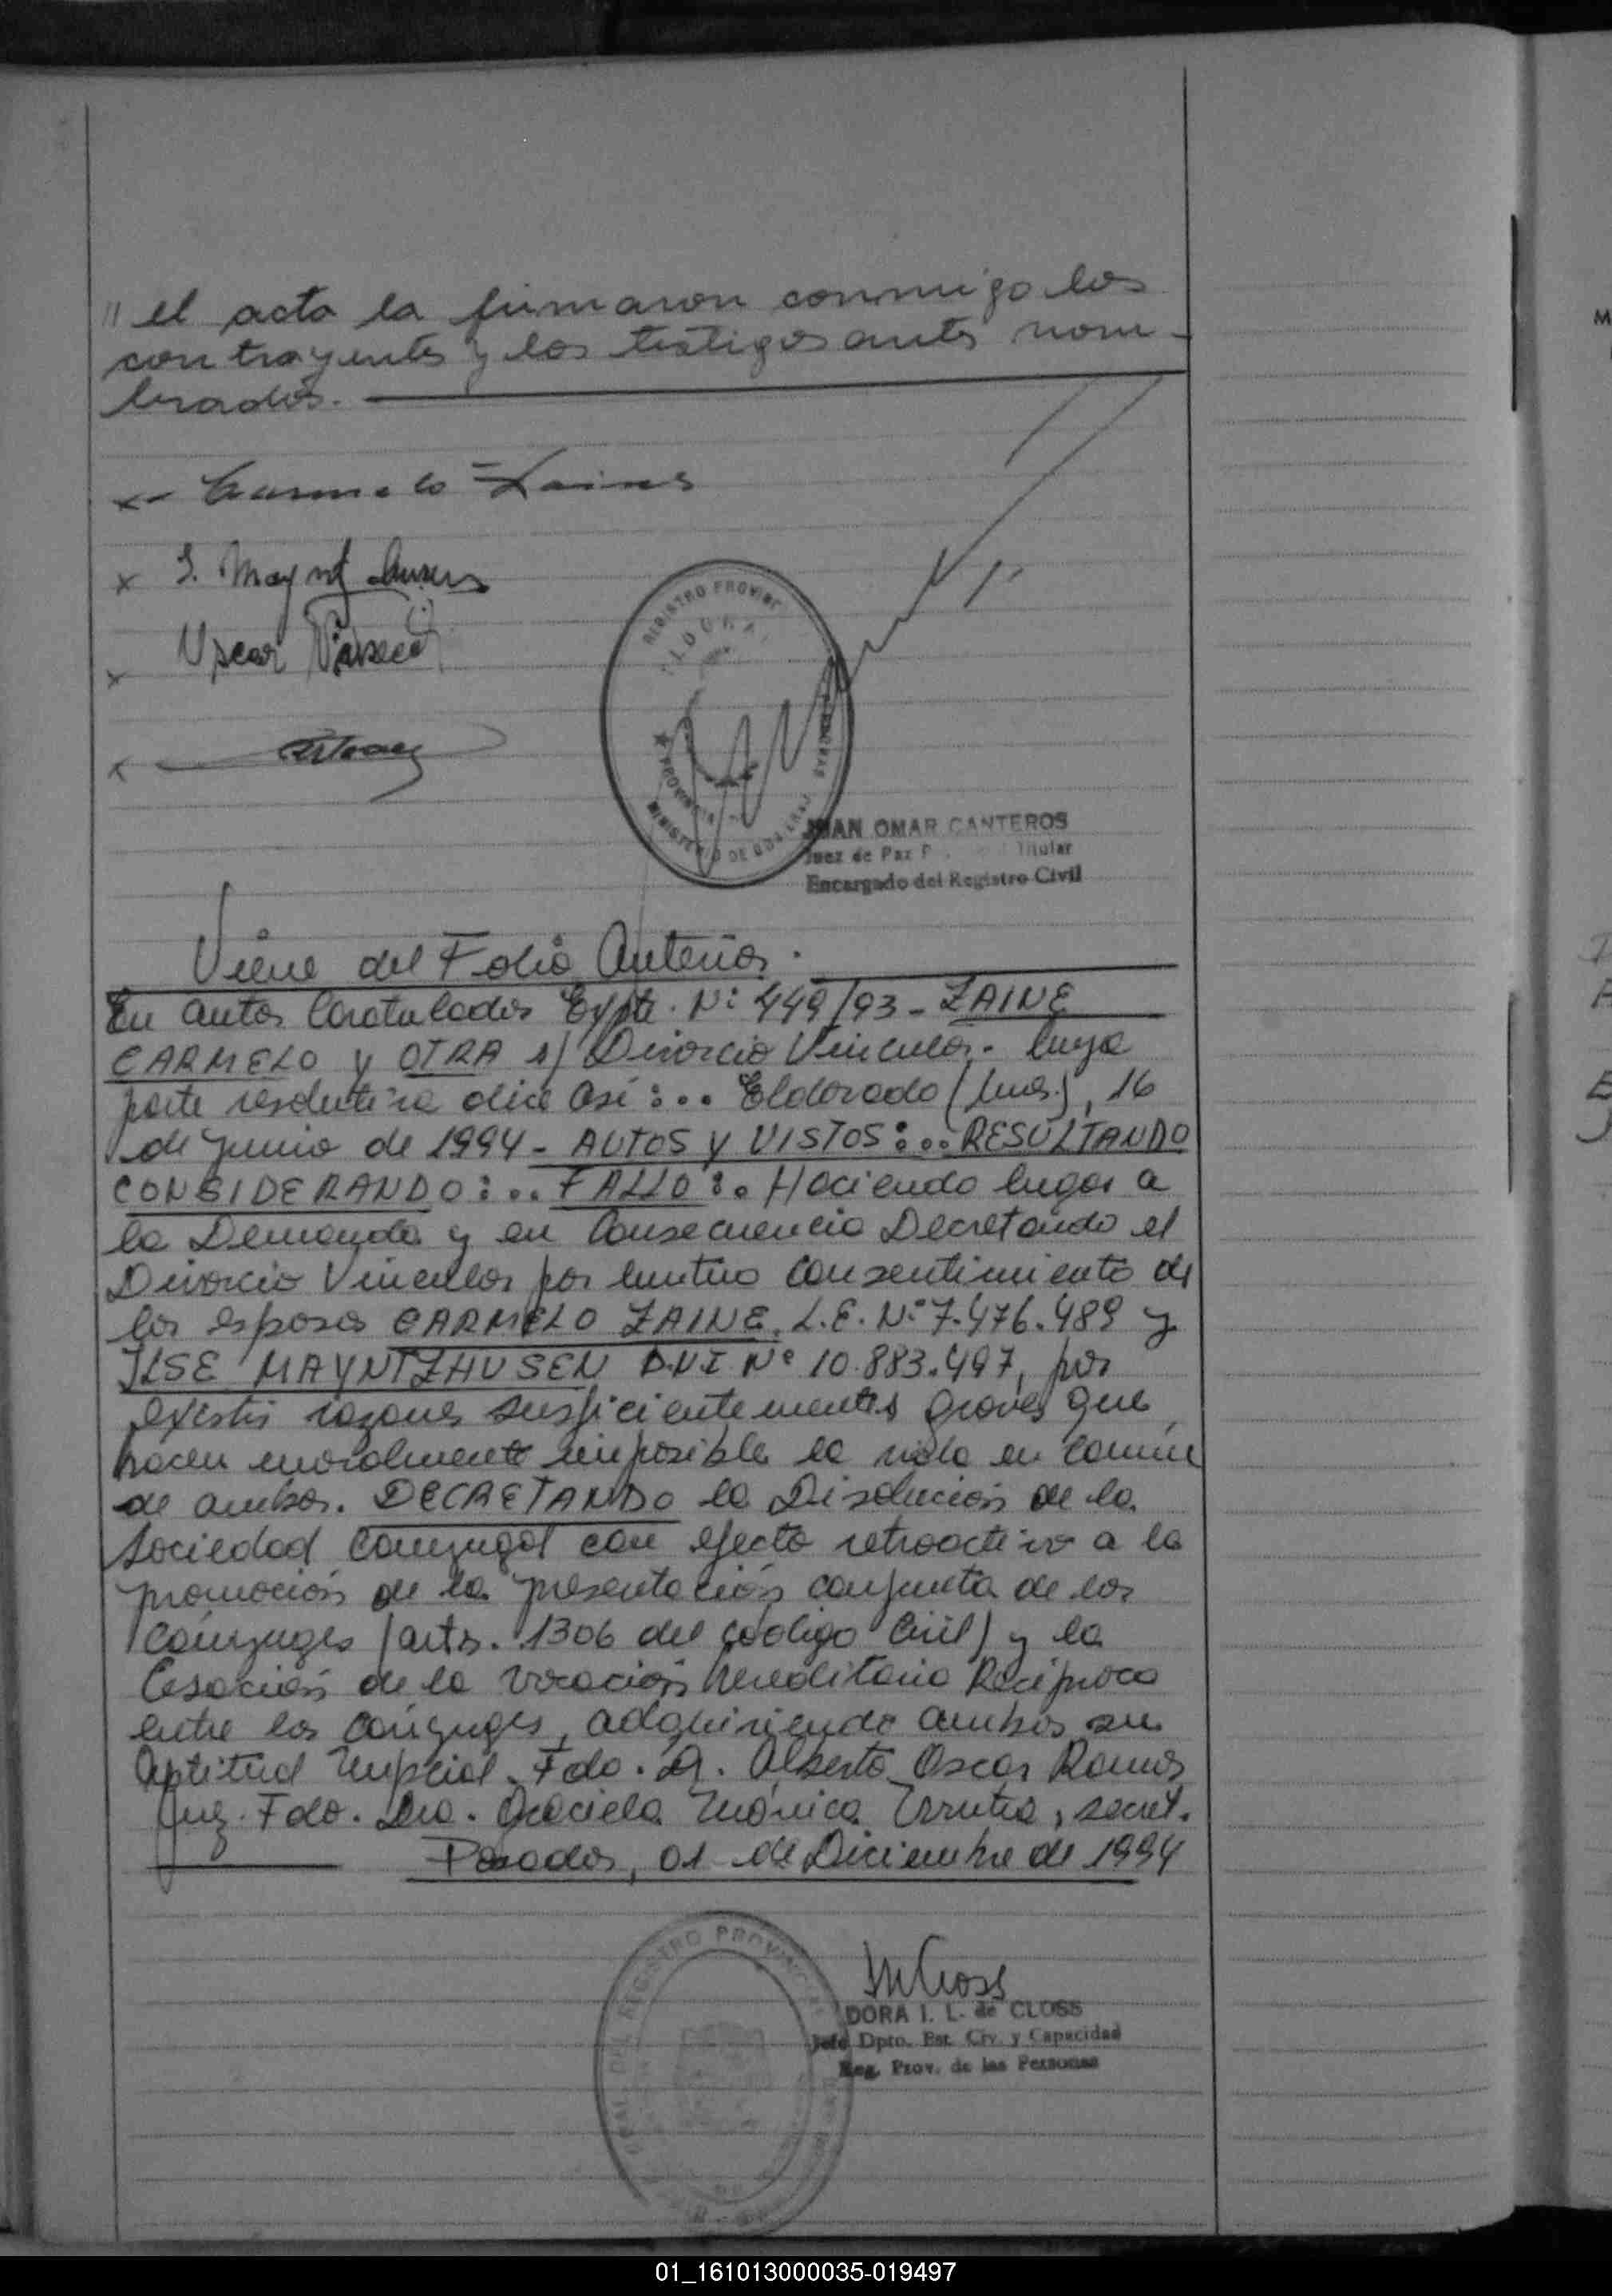 " el acta la firmaron conmigo los
contrayentes y los testigos antes nom-
brados.
x Carmelo Zaine
x I. Mayntzhusen
x Oscar
x
REGISTRO PROVINC
ELDORA
PROVINCIA
MINISTERIO DE GOB
JUAN OMAR CANTEROS
Juez de Paz P Titular
Encargado del Registro Civil
Viene del Folio Anterior.
En autos Caratulados Expte. Nº 449/93 - ZAINE
CARMELO y OTRA s/ Divorcio Vincular. Cuya
parte resolutiva dice así:.. Eldorado (Mnes.), 16
de junio de 1994 - AUTOS Y VISTOS:.. RESULTANDO
CONSIDERANDO:.. FALLO:. Haciendo lugar a
la Demanda y en Consecuencia Decretando el
Divorcio Vincular por Mutuo Consentimiento de
los esposos CARMELO ZAINE, L.E. Nº 7.476.489 y
ILSE MAYNTZHUSEN D.N.I. Nº 10.883.497, por
existir razones suficientementes graves que
hacen moralmente imposible la vida en Común
de ambos. DECRETANDO la Disolución de la
Sociedad Conyugal con efecto retroactivo a la
promoción de la presentación conjunta de los
Cónyuges (arts. 1306 del Código Civil) y la
Cesación de la vocación hereditaria Recíproca
entre los cónyuges, adquiriendo ambos su
Aptitud Nupcial. Fdo. Dr. Alberto Oscar Ramos
Juez. Fdo. Dra. Graciela Mónica Urrutia, secret.
Posadas, 01 de Diciembre de 1994
REGISTRO PROVINCIAL
DORA I. L. de CLOSS
Jefe Dpto. Est. Civ. y Capacidad
Reg. Prov. de las Personas
01_161013000035-019497